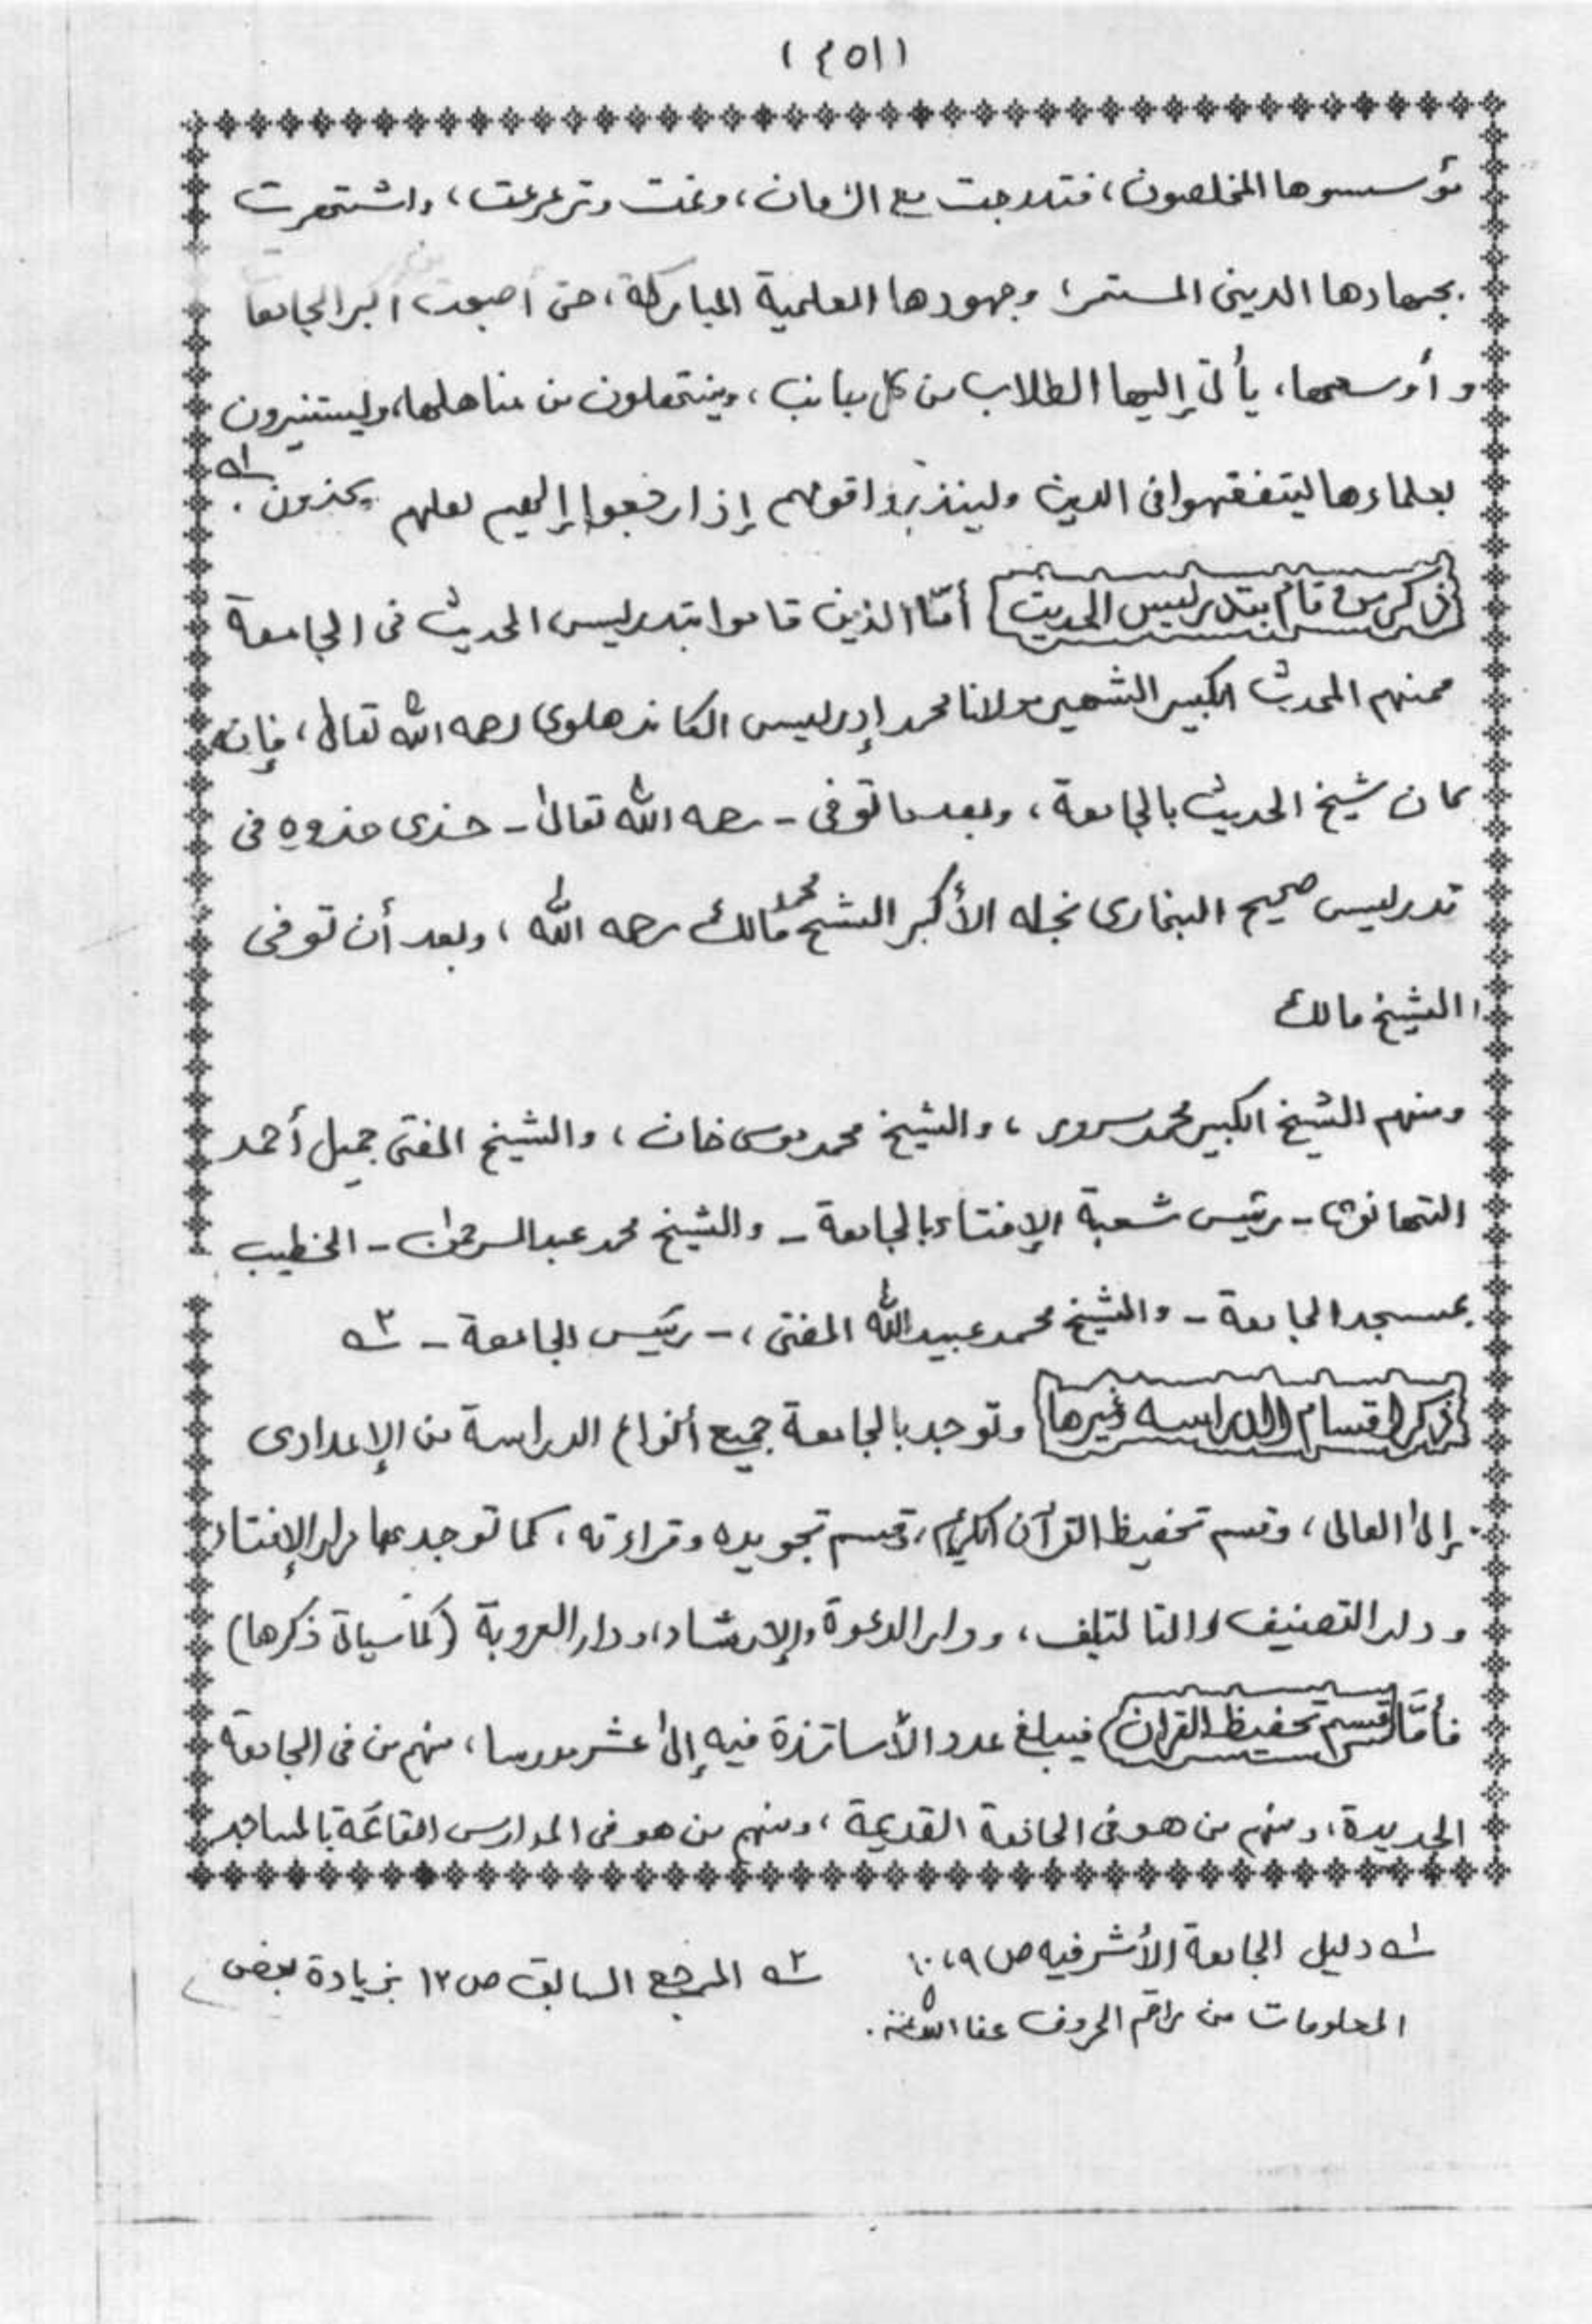 مؤسسوها المخلصون، فتدرجت مع الزمان، ونمت وترعرعت، واشتهرت
بجهادها الديني المستمر، وجهودها العلمية المباركة، حتى أصبحت أكبر الجامعا
وأوسعها، يأتي إليها الطلاب من كل جانب، وينتهلون من مناهلها، وليستنيرون
بعلماءها ليتفقهوا في الدين ولينذروا قومهم إذا رجعوا إليهم لعلهم يحذرون. ١ـه
ذكر من قام بتدريس الحديث أمّا الذين قاموا بتدريس الحديث في الجامعة
فمنهم المحدث الكبير الشهير مولانا محمد إدريس الكاندهلوي رحمه الله تعالى، فإنه
كان شيخ الحديث بالجامعة، وبعد ما توفي - رحمه الله تعالى - حذى حذوه في
تدريس صحيح البخاري نجله الأكبر الشيخ محمد مالك رحمه الله، وبعد أن توفي
الشيخ مالك
ومنهم الشيخ الكبير محمد سرور، والشيخ محمد موسى خان، والشيخ المفتي جميل أحمد
التهانوي - رئيس شعبة الإفتاء بالجامعة - والشيخ محمد عبد الرحمن - الخطيب
بمسجد الجامعة - والشيخ محمد عبيد الله المفتي، - رئيس الجامعة - ٢ـه
ذكر أقسام الدراسه وغيرها وتوجد بالجامعة جميع أنواع الدراسة من الإعدادى
إلى العالى، وقسم تحفيظ القرآن الكريم، وقسم تجويده وقراءته، كما توجد بها دار الإفتاء
ودار التصنيف والتالتيلف، ودار الدعوة والإرشاد، ودار العروبة (كما سيأتي ذكرها)
فأمَّا قسم تحفيظ القران فيبلغ عدد الأساتذة فيه إلى عشر مدرسا، منهم من في الجامعة
الجديدة، ومنهم من هو في الجامعة القديمة، ومنهم من هو في المدارس القائمة بالمساجد
١ـه دليل الجامعة الأشرفيه ص ٩، ١٠ ٢ـه المرجع السابق ص ١٢ بزيادة بعض
المعلومات من راقم الحروف عفا الله عنه.